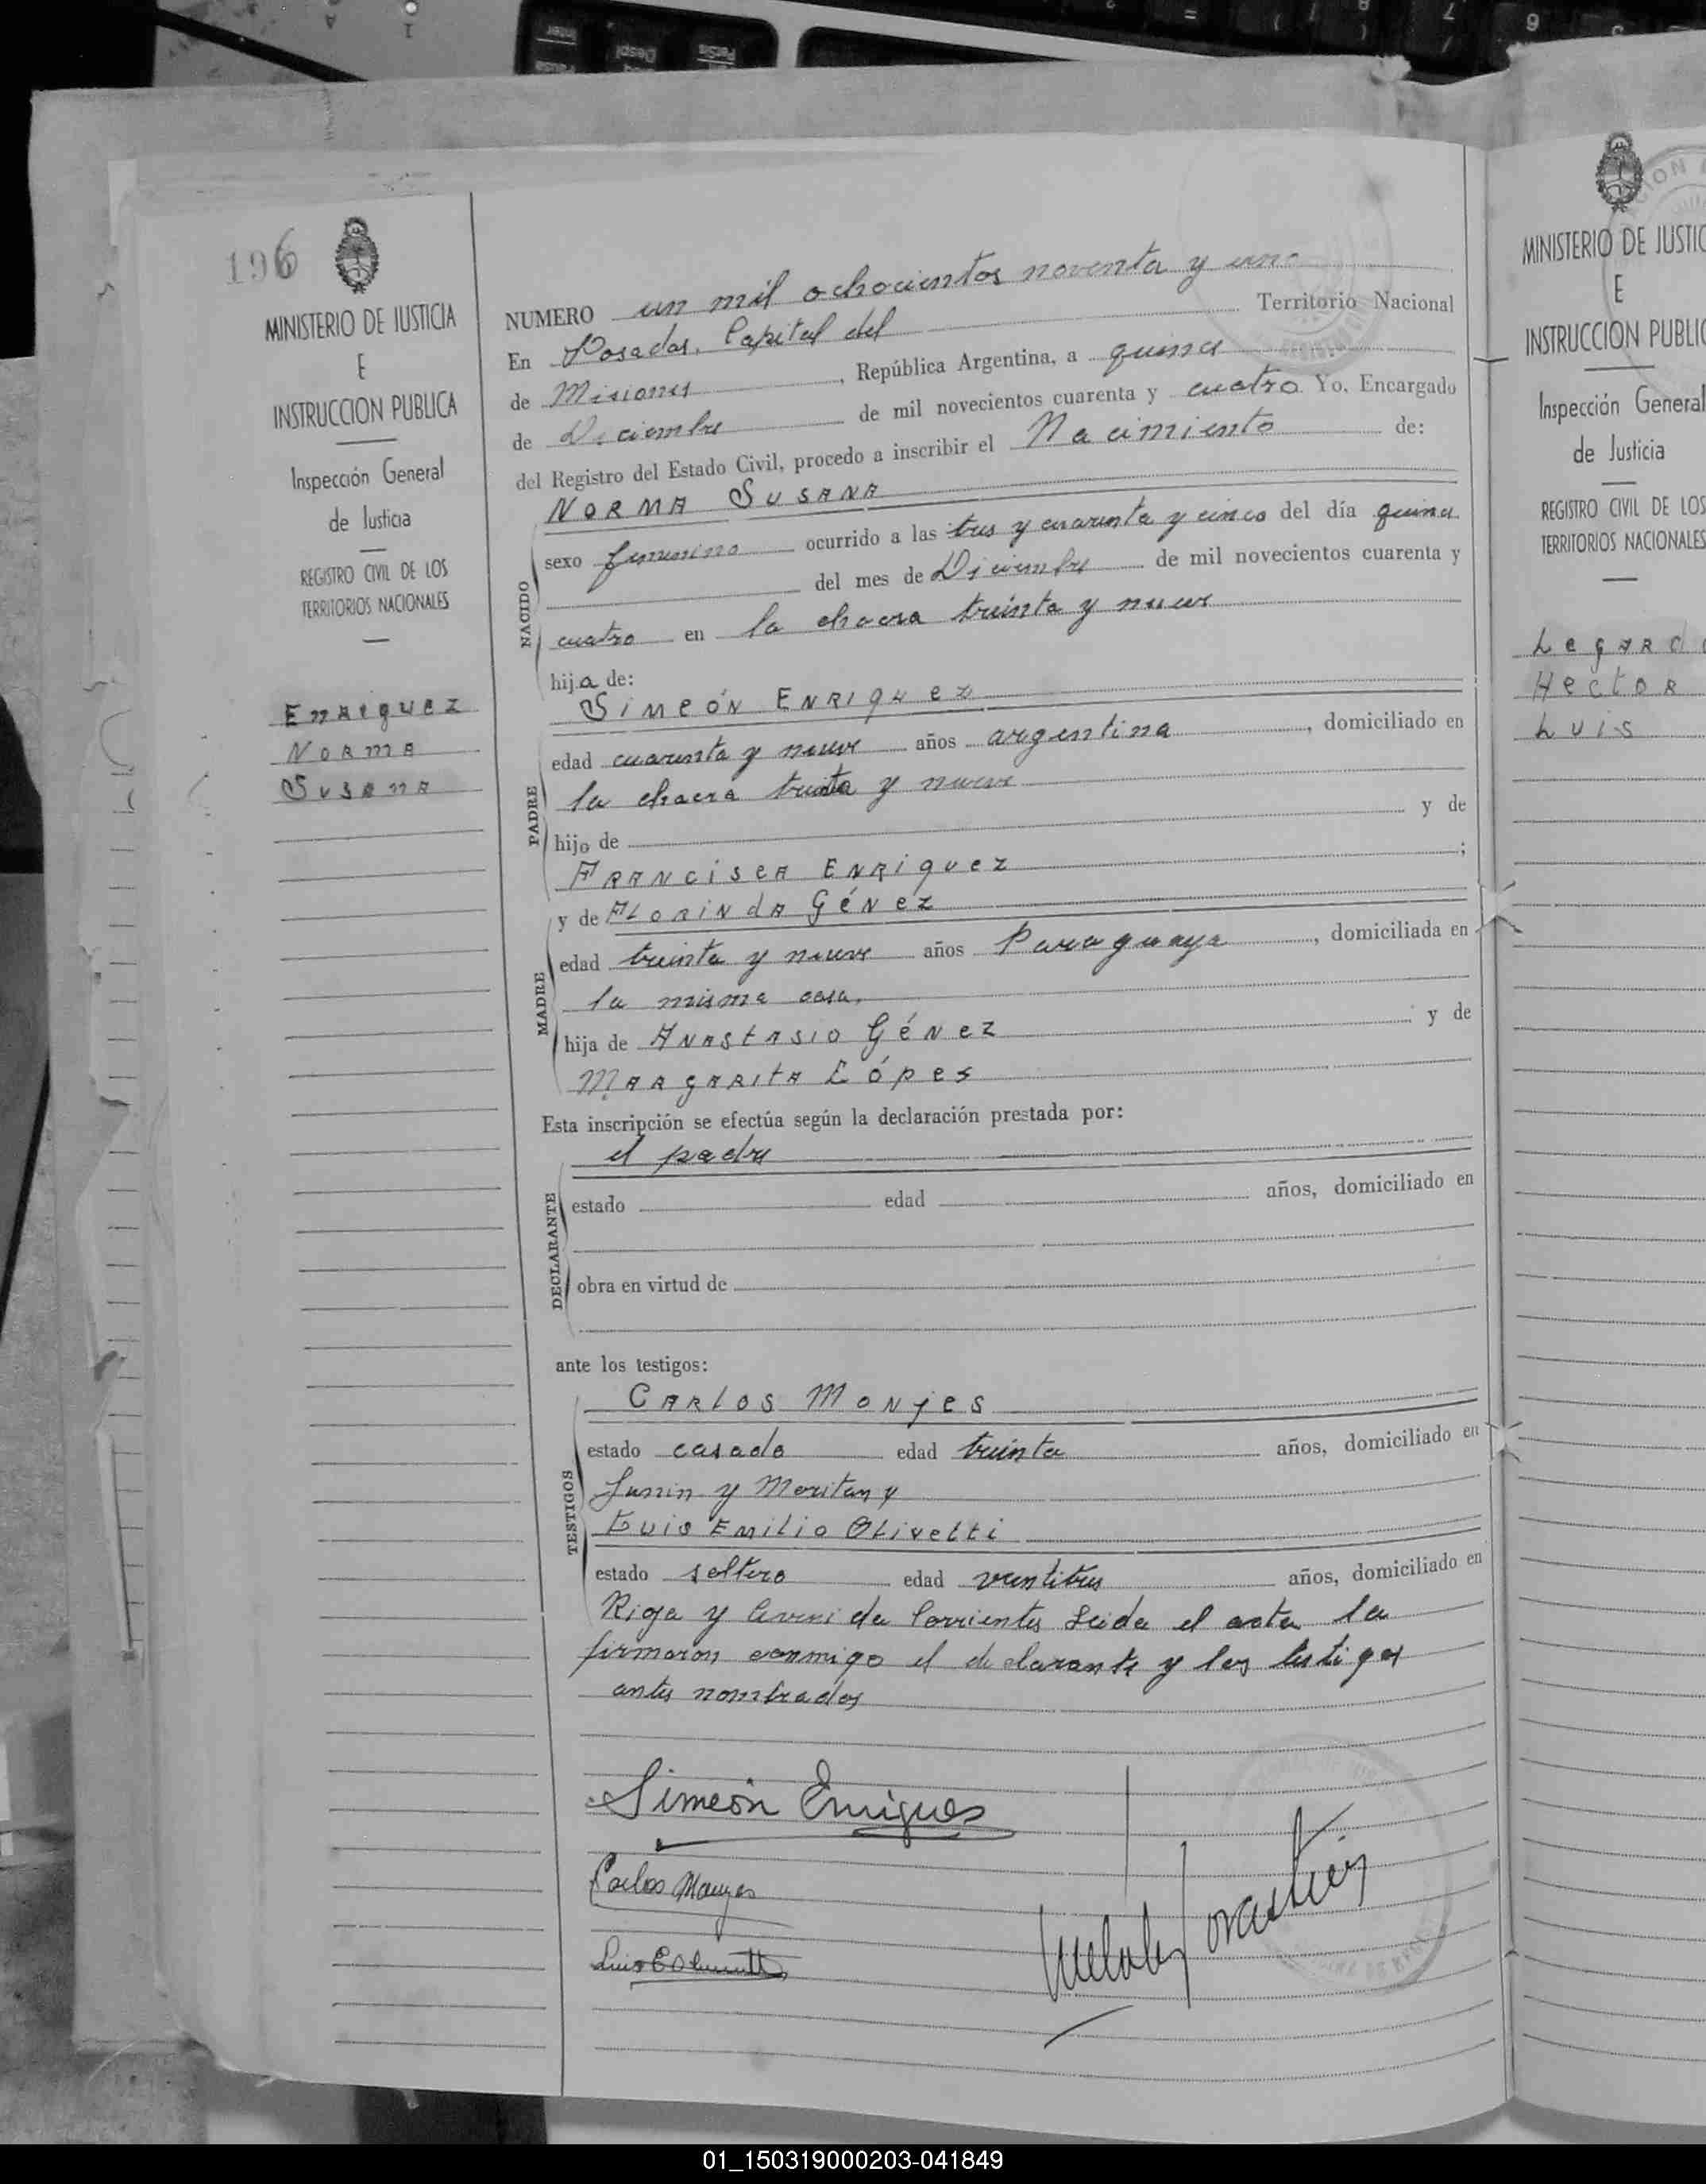 196
MINISTERIO DE JUSTICIA
E
INSTRUCCION PUBLICA
Inspección General
de Justicia
REGISTRO CIVIL DE LOS
TERRITORIOS NACIONALES
Enriquez
Norma
Susana
NUMERO un mil ochocientos noventa y uno
En Posadas, Capital del Territorio Nacional
de Misiones, República Argentina, a quince
de Diciembre de mil novecientos cuarenta y cuatro. Yo, Encargado
del Registro del Estado Civil, procedo a inscribir el Nacimiento de:
NORMA SUSANA
NACIDO
sexo femenino ocurrido a las tres y cuarenta y cinco del día quince
del mes de Diciembre de mil novecientos cuarenta y
cuatro en la chacra treinta y nueve
hija de:
SIMEÓN ENRIQUEZ
PADRE
edad cuarenta y nueve años argentina, domiciliado en
la chacra treinta y nueve
hijo de y de
FRANCISCA ENRIQUEZ;
y de FLORINDA GÉNEZ
MADRE
edad treinta y nueve años Paraguaya, domiciliada en
la misma casa,
hija de ANASTASIO GÉNEZ y de
MARGARITA LÓPES
Esta inscripción se efectúa según la declaración prestada por:
el padre
DECLARANTE
estado edad años, domiciliado en
obra en virtud de
ante los testigos:
CARLOS MONJES
TESTIGOS
estado casado edad treinta años, domiciliado en
Junin y Moritan y
LUIS EMILIO OLIVETTI
estado soltero edad veintitres años, domiciliado en
Rioja y Avenida Corrientes Leida el acta la
firmaron conmigo el declarante y los testigos
antes nombrados
Simeón Enriques
Carlos Monges
MINISTERIO DE JUSTIC
E
INSTRUCCION PUBLIC
Inspección General
de Justicia
REGISTRO CIVIL DE LOS
TERRITORIOS NACIONALES
Legard
Hector
Luis
01_150319000203-041849